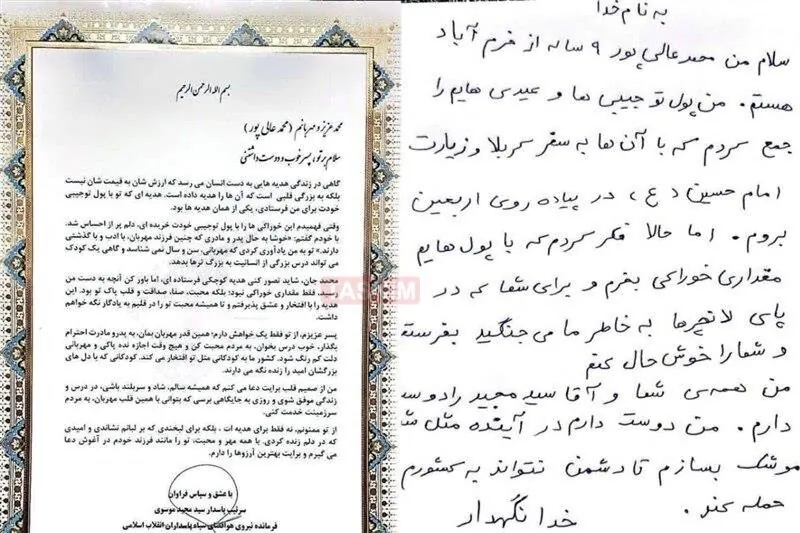 بسم الله الرحمن الرحیم
محمد عزیز و مهربانم (محمد عالی پور)
سلام بر تو، پسر خوب و دوست داشتنی
گاهی در زندگی هدیه هایی به دست انسان می رسد که ارزش شان به قیمت شان نیست
بلکه به بزرگی قلبی است که آن ها را هدیه داده است. هدیه ای که تو با پول توجیبی
خودت برای من فرستادی، یکی از همان هدیه ها بود.
وقتی فهمیدم این خوراکی ها را با پول توجیبی خودت خریده ای، دلم پر از احساس شد.
با خودم گفتم: «خوشا به حال پدر و مادری که چنین فرزند مهربان، با ادب و با گذشتی
دارند.» تو به من یادآوری کردی که مهربانی، سن و سال نمی شناسد و گاهی یک کودک
می تواند درس بزرگی از انسانیت به بزرگ ترها بدهد.
محمد جان، شاید تصور کنی هدیه کوچکی فرستاده ای، اما باور کن آنچه به دست من
رسید، فقط مقداری خوراکی نبود؛ بلکه محبت، صفا، صداقت و قلب پاک تو بود. این
هدیه را با افتخار و عشق پذیرفتم و تا همیشه محبت تو را در قلبم به یادگار نگه خواهم
داشت.
پسر عزیزم، از تو فقط یک خواهش دارم: همین قدر مهربان بمان، به پدر و مادرت احترام
بگذار، خوب درس بخوان، به مردم محبت کن و هیچ وقت اجازه نده پاکی و مهربانی
دلت کم رنگ شود. کشور ما به کودکانی مثل تو افتخار می کند. کودکانی که با دل های
بزرگشان امید را زنده نگه می دارند.
من از صمیم قلب برایت دعا می کنم که همیشه سالم، شاد و سربلند باشی، در درس و
زندگی موفق شوی و روزی به جایگاهی برسی که بتوانی با همین قلب مهربان، به مردم
سرزمینت خدمت کنی.
از تو ممنونم، نه فقط برای هدیه ات، بلکه برای لبخندی که بر لبانم نشاندی و امیدی
که در دلم زنده کردی. با همه مهر و محبت، تو را مانند فرزند خودم در آغوش دعا
می گیرم و برایت بهترین آرزوها را دارم.
با عشق و سپاس فراوان
سرتیپ پاسدار سید مجید موسوی
فرمانده نیروی هوافضای سپاه پاسداران انقلاب اسلامی
به نام خدا
سلام من محمد عالی پور ۹ ساله از خرم آباد
هستم. من پول تو جیبی ها و عیدی هایم را
جمع کردم که با آن ها به سفر کربلا و زیارت
امام حسین (ع)، در پیاده روی اربعین
بروم. اما حالا فکر کردم که با پول هایم
مقداری خوراکی بخرم و برای شما که در
پای لانچرها به خاطر ما می جنگید بفرستم
و شما را خوش حال کنم
من همه ی شما و آقا سید مجید را دوست
دارم. من دوست دارم در آینده مثل شما
موشک بسازم تا دشمن نتواند به کشورم
حمله کند.
خدانگهدار
TASNIM